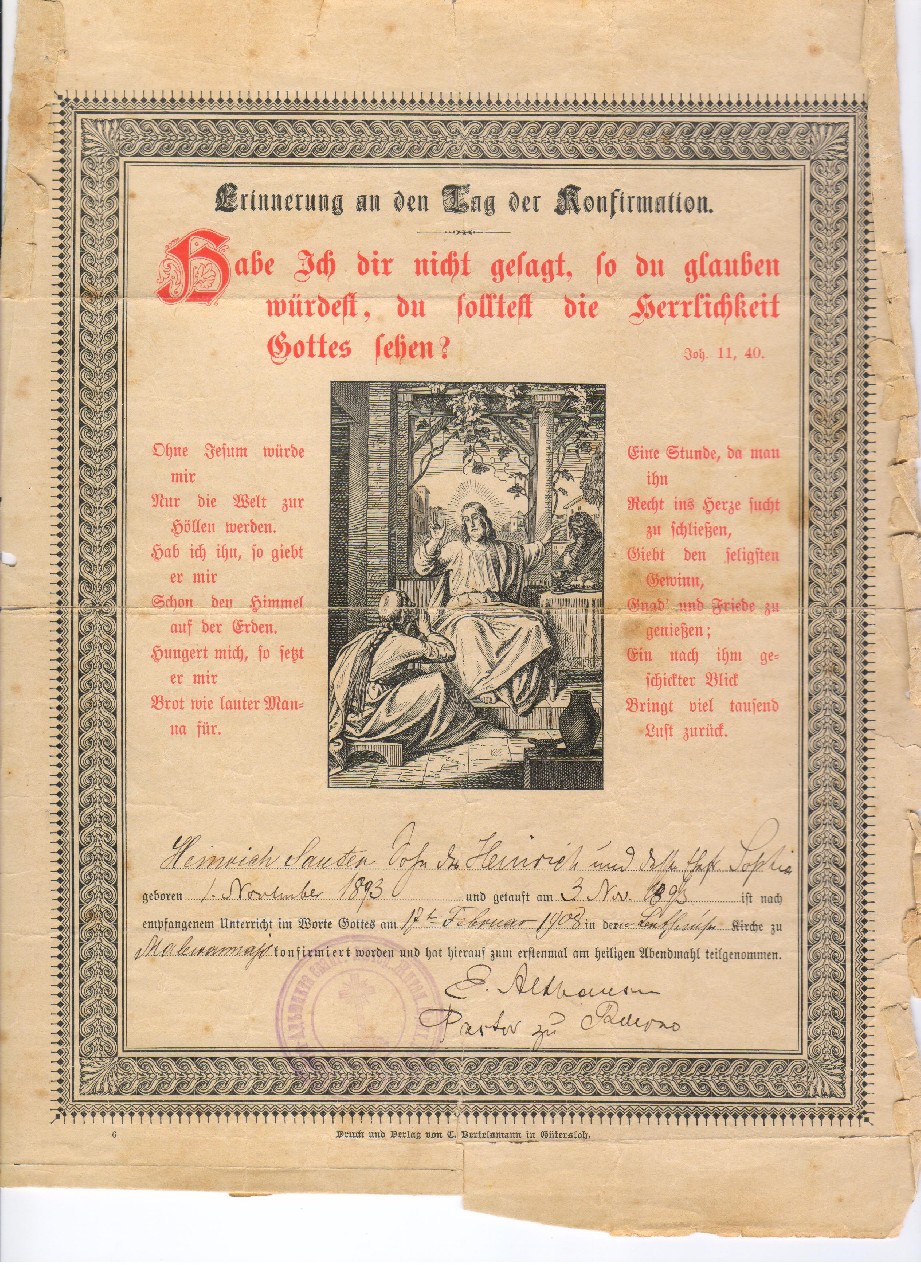 Erinnerung an den Tag der Konfirmation.
Habe Ich dir nicht gesagt, so du glauben
würdest, du solltest die Herrlichkeit
Gottes sehen?
Joh. 11, 40.
Ohne Jesum würde
mir
Nur die Welt zur
Höllen werden.
Hab ich ihn, so giebt
er mir
Schon den Himmel
auf der Erden.
Hungert mich, so setzt
er mir
Brot wie lauter Man-
na für.
Eine Stunde, da man
ihn
Recht ins Herze sucht
zu schließen,
Giebt den seligsten
Gewinn,
Gnad' und Friede zu
genießen;
Ein nach ihm ge-
schickter Blick
Bringt viel tausend
Lust zurück.
Heinrich Sauter Sohn des Heinrich und Sophie
geboren 1. November 1893 und getauft am 3 Nov. 1893 ist nach
empfangenem Unterricht im Worte Gottes am 17ten Februar 1908 in der Kirche zu
konfirmiert worden und hat hierauf zum erstenmal am heiligen Abendmahl teilgenommen.
E. Althausen
Pastor zu
6
Druck und Verlag von C. Bertelsmann in Gütersloh.